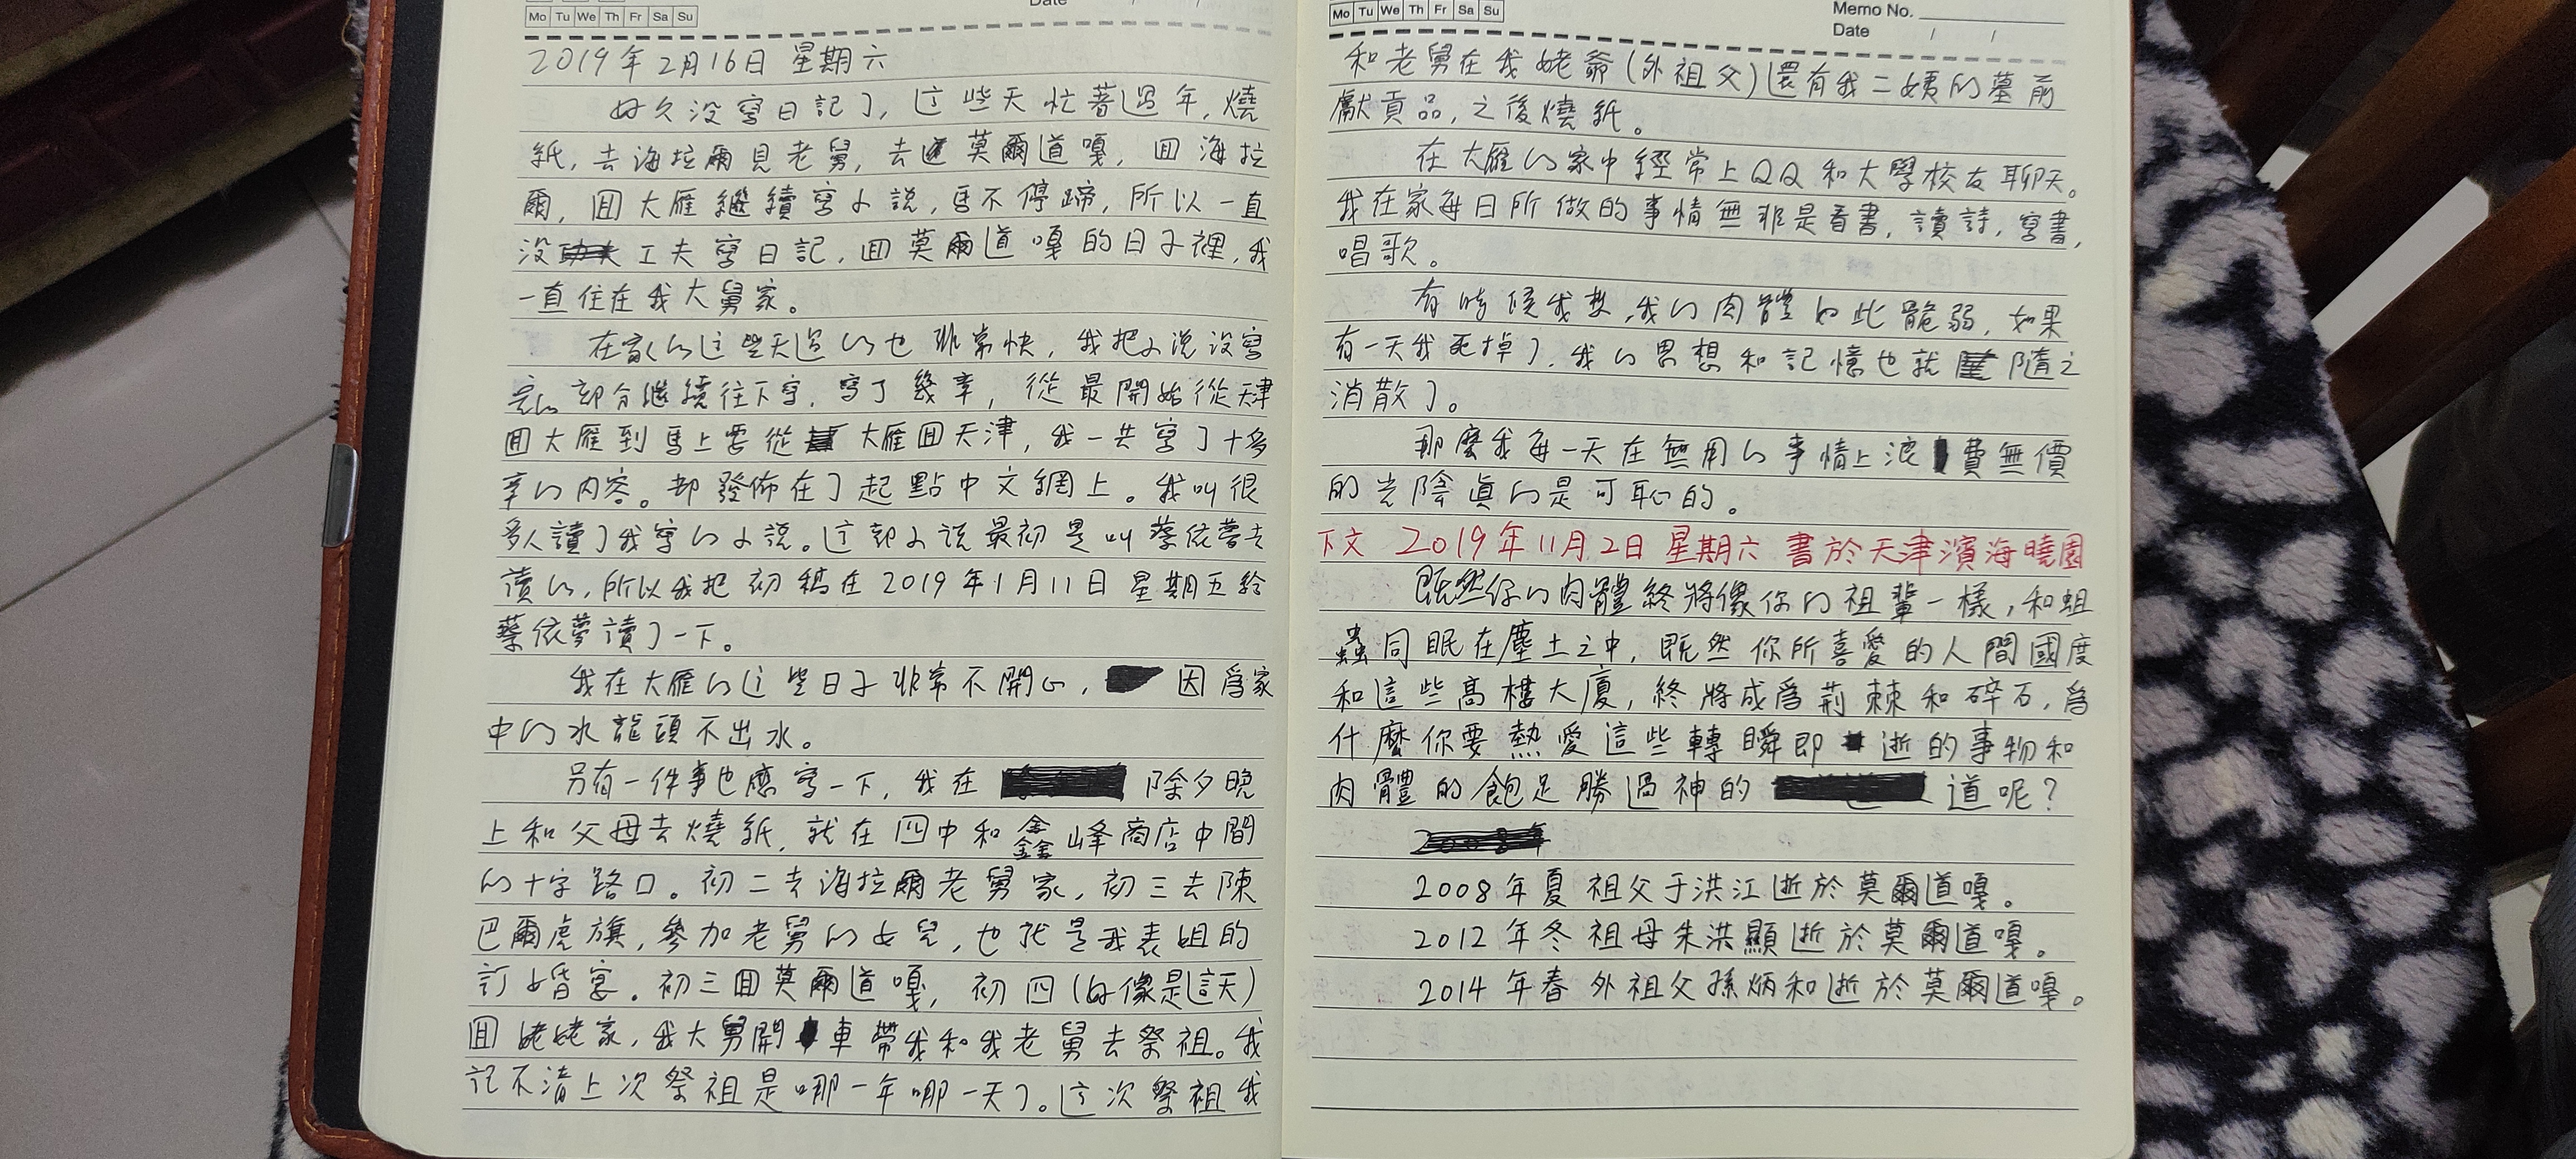 Date / /
Mo Tu We Th Fr Sa Su
2019年2月16日 星期六
好久没寫日記了,这些天忙著過年,燒
紙,去海拉爾見老舅,去莫爾道嘎,囬海拉
爾,囬大雁繼續寫小説,馬不停蹄,所以一直
没工夫寫日記,囬莫爾道嘎的日子裡,我
一直住在我大舅家。
在家的这些天過的也非常快,我把小说没寫
完的部分繼續往下写,寫了幾章,從最開始從天津
囬大雁到馬上要從大雁囬天津,我一共寫了十多
章的内容。都發佈在了起點中文網上。我叫很
多人讀了我寫的小説。这部小说最初是叫蔡依夢去
讀的,所以我把初稿在2019年1月11日星期五給
蔡依夢讀了一下。
我在大雁的这些日子非常不開心,因爲家
中的水龍頭不出水。
另有一件事也應写一下,我在除夕晚
上和父母去燒紙,就在四中和鑫峰商店中間
的十字路口。初二去海拉爾老舅家,初三去陳
巴爾虎旗,參加老舅的女兒,也就是我表姐的
訂婚宴。初三囬莫爾道嘎,初四(好像是這天)
囬姥姥家,我大舅開車帶我和我老舅去祭祖。我
記不清上次祭祖是哪一年哪一天了。这次祭祖我
Mo Tu We Th Fr Sa Su
Memo No.
Date / /
和老舅在我姥爺(外祖父)還有我二姨的墓前
獻貢品,之後燒紙。
在大雁的家中經常上QQ和大學校友聊天。
我在家每日所做的事情無非是看書,讀詩,寫書,
唱歌。
有時候我想,我的肉體如此脆弱,如果
有一天我死掉了,我的思想和記憶也就隨之
消散了。
那麼我每一天在無用的事情上浪費無價
的光陰真的是可恥的。
下文 2019年11月2日 星期六 書於天津濱海曉園
既然你的肉體終將像你的祖輩一樣,和蛆
蟲同眠在塵土之中,既然你所喜愛的人間國度
和這些高樓大廈,終將成爲荊棘和碎石,爲
什麼你要熱愛這些轉瞬即逝的事物和
肉體的飽足勝過神的道呢?
2008年
2008年夏 祖父于洪江逝於莫爾道嘎。
2012年冬 祖母朱洪顯逝於莫爾道嘎。
2014年春 外祖父孫炳和逝於莫爾道嘎。